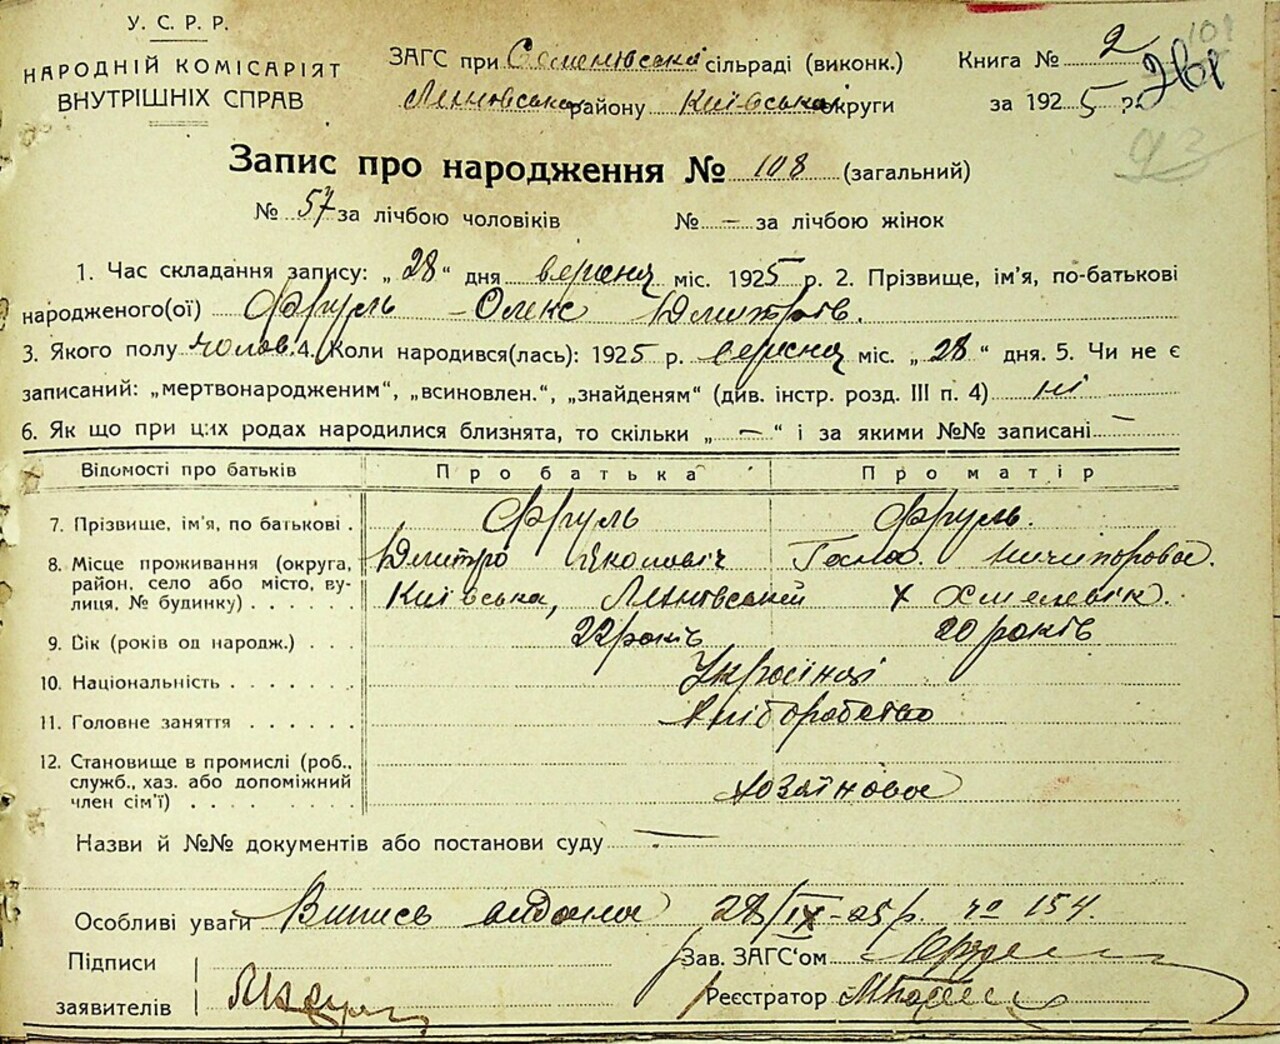 У. С. Р. Р.
НАРОДНІЙ КОМІСАРІЯТ
ВНУТРІШНІХ СПРАВ
ЗАГС при Семенівській сільраді (виконк.)
району Київської округи
Книга № 2
за 1925 р.
93
Запис про народження № 108 (загальний)
№ 57 за лічбою чоловіків № — за лічбою жінок
1. Час складання запису: „28“ дня вересня міс. 1925 р. 2. Прізвище, ім'я, по-батькові
народженого(ої) Фриуль - Олекс Дмитрів.
3. Якого полу чолов. 4. Коли народився(лась): 1925 р. вересня міс. „28“ дня. 5. Чи не є
записаний: „мертвонародженим“, „всиновлен.“, „знайденям“ (див. інстр. розд. III п. 4) ні
6. Як що при цих родах народилися близнята, то скільки „ — “ і за якими №№ записані —
Відомості про батьків Про батька Про матір
7. Прізвище, ім'я, по батькові . Фриуль Фриуль.
8. Місце проживання (округа, Дмитро Якович Ганна. Ничипорова.
район, село або місто, ву-
лиця, № будинку) . . . . . . Київська, х Хмелевік.
9. Вік (років од народж.) . . . 22 років 20 років
10. Національність . . . . . . Українці
11. Головне заняття . . . . . . Хліборобство
12. Становище в промислі (роб.,
служб., хаз. або допоміжний
член сім'ї) . . . . . . . Хозяйнова
Назви й №№ документів або постанови суду —
Особливі уваги Випись видана 28/IX-25 р. № 154.
Підписи
заявителів
Зав. ЗАГС'ом
Реєстратор